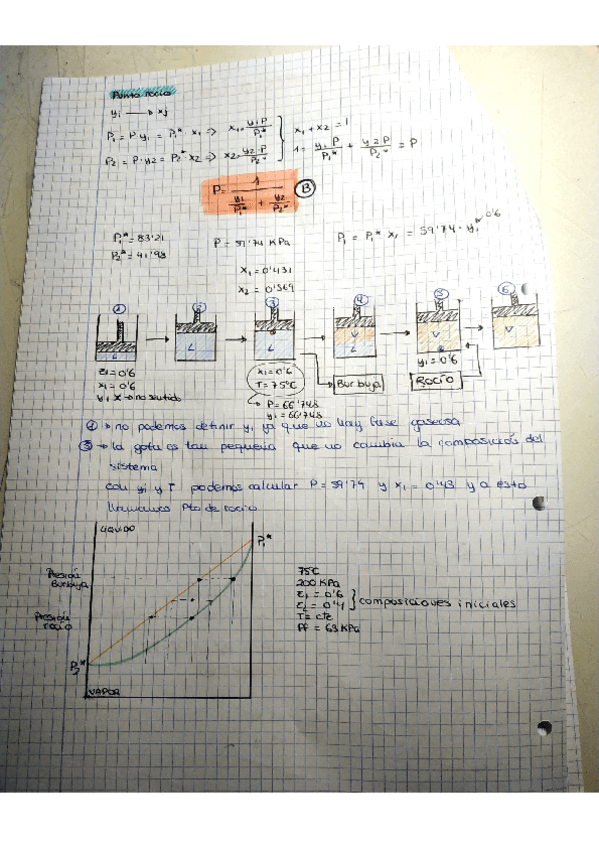 Punto rocío
yi → xj
P₁ = P·y₁ = P₁*·x₁ => x₁ = y₁P/P₁*
P₂ = P·y₂ = P₂*·x₂ => x₂ = y₂·P/P₂*
x₁ + x₂ = 1
1 = y₁P/P₁* + y₂P/P₂* = P
P = 1/(y₁/P₁* + y₂/P₂*) B
P₁* = 83'21
P₂* = 41'98
P = 59'74 KPa
P₁ = P₁*·x₁ = 59'74·y₁ 0'6
x₁ = 0'431
x₂ = 0'569
1 2 3 4 5 6
L L L V L V V
z₁ = 0'6
x₁ = 0'6
y₁ X → no sentido
x₁ = 0'6
T = 75ºC
P = 66'748
y₁ = 66'748
Burbuja
y₁ = 0'6
ROCÍO
1 → no podemos definir y₁ ya que no hay fase gaseosa
5 → la gota es tan pequeña que no cambia la composición del
sistema
con yi y T podemos calcular P = 59'74 y x₁ = 0'43 y a esto
llamamos Pto de rocío
LÍQUIDO
P₁*
Presión
Burbuja
Presión
rocío
P₂*
VAPOR
75ºC
200 KPa
z₁ = 0'6
z₂ = 0'4
composiciones iniciales
T = cte
Pf = 63 KPa